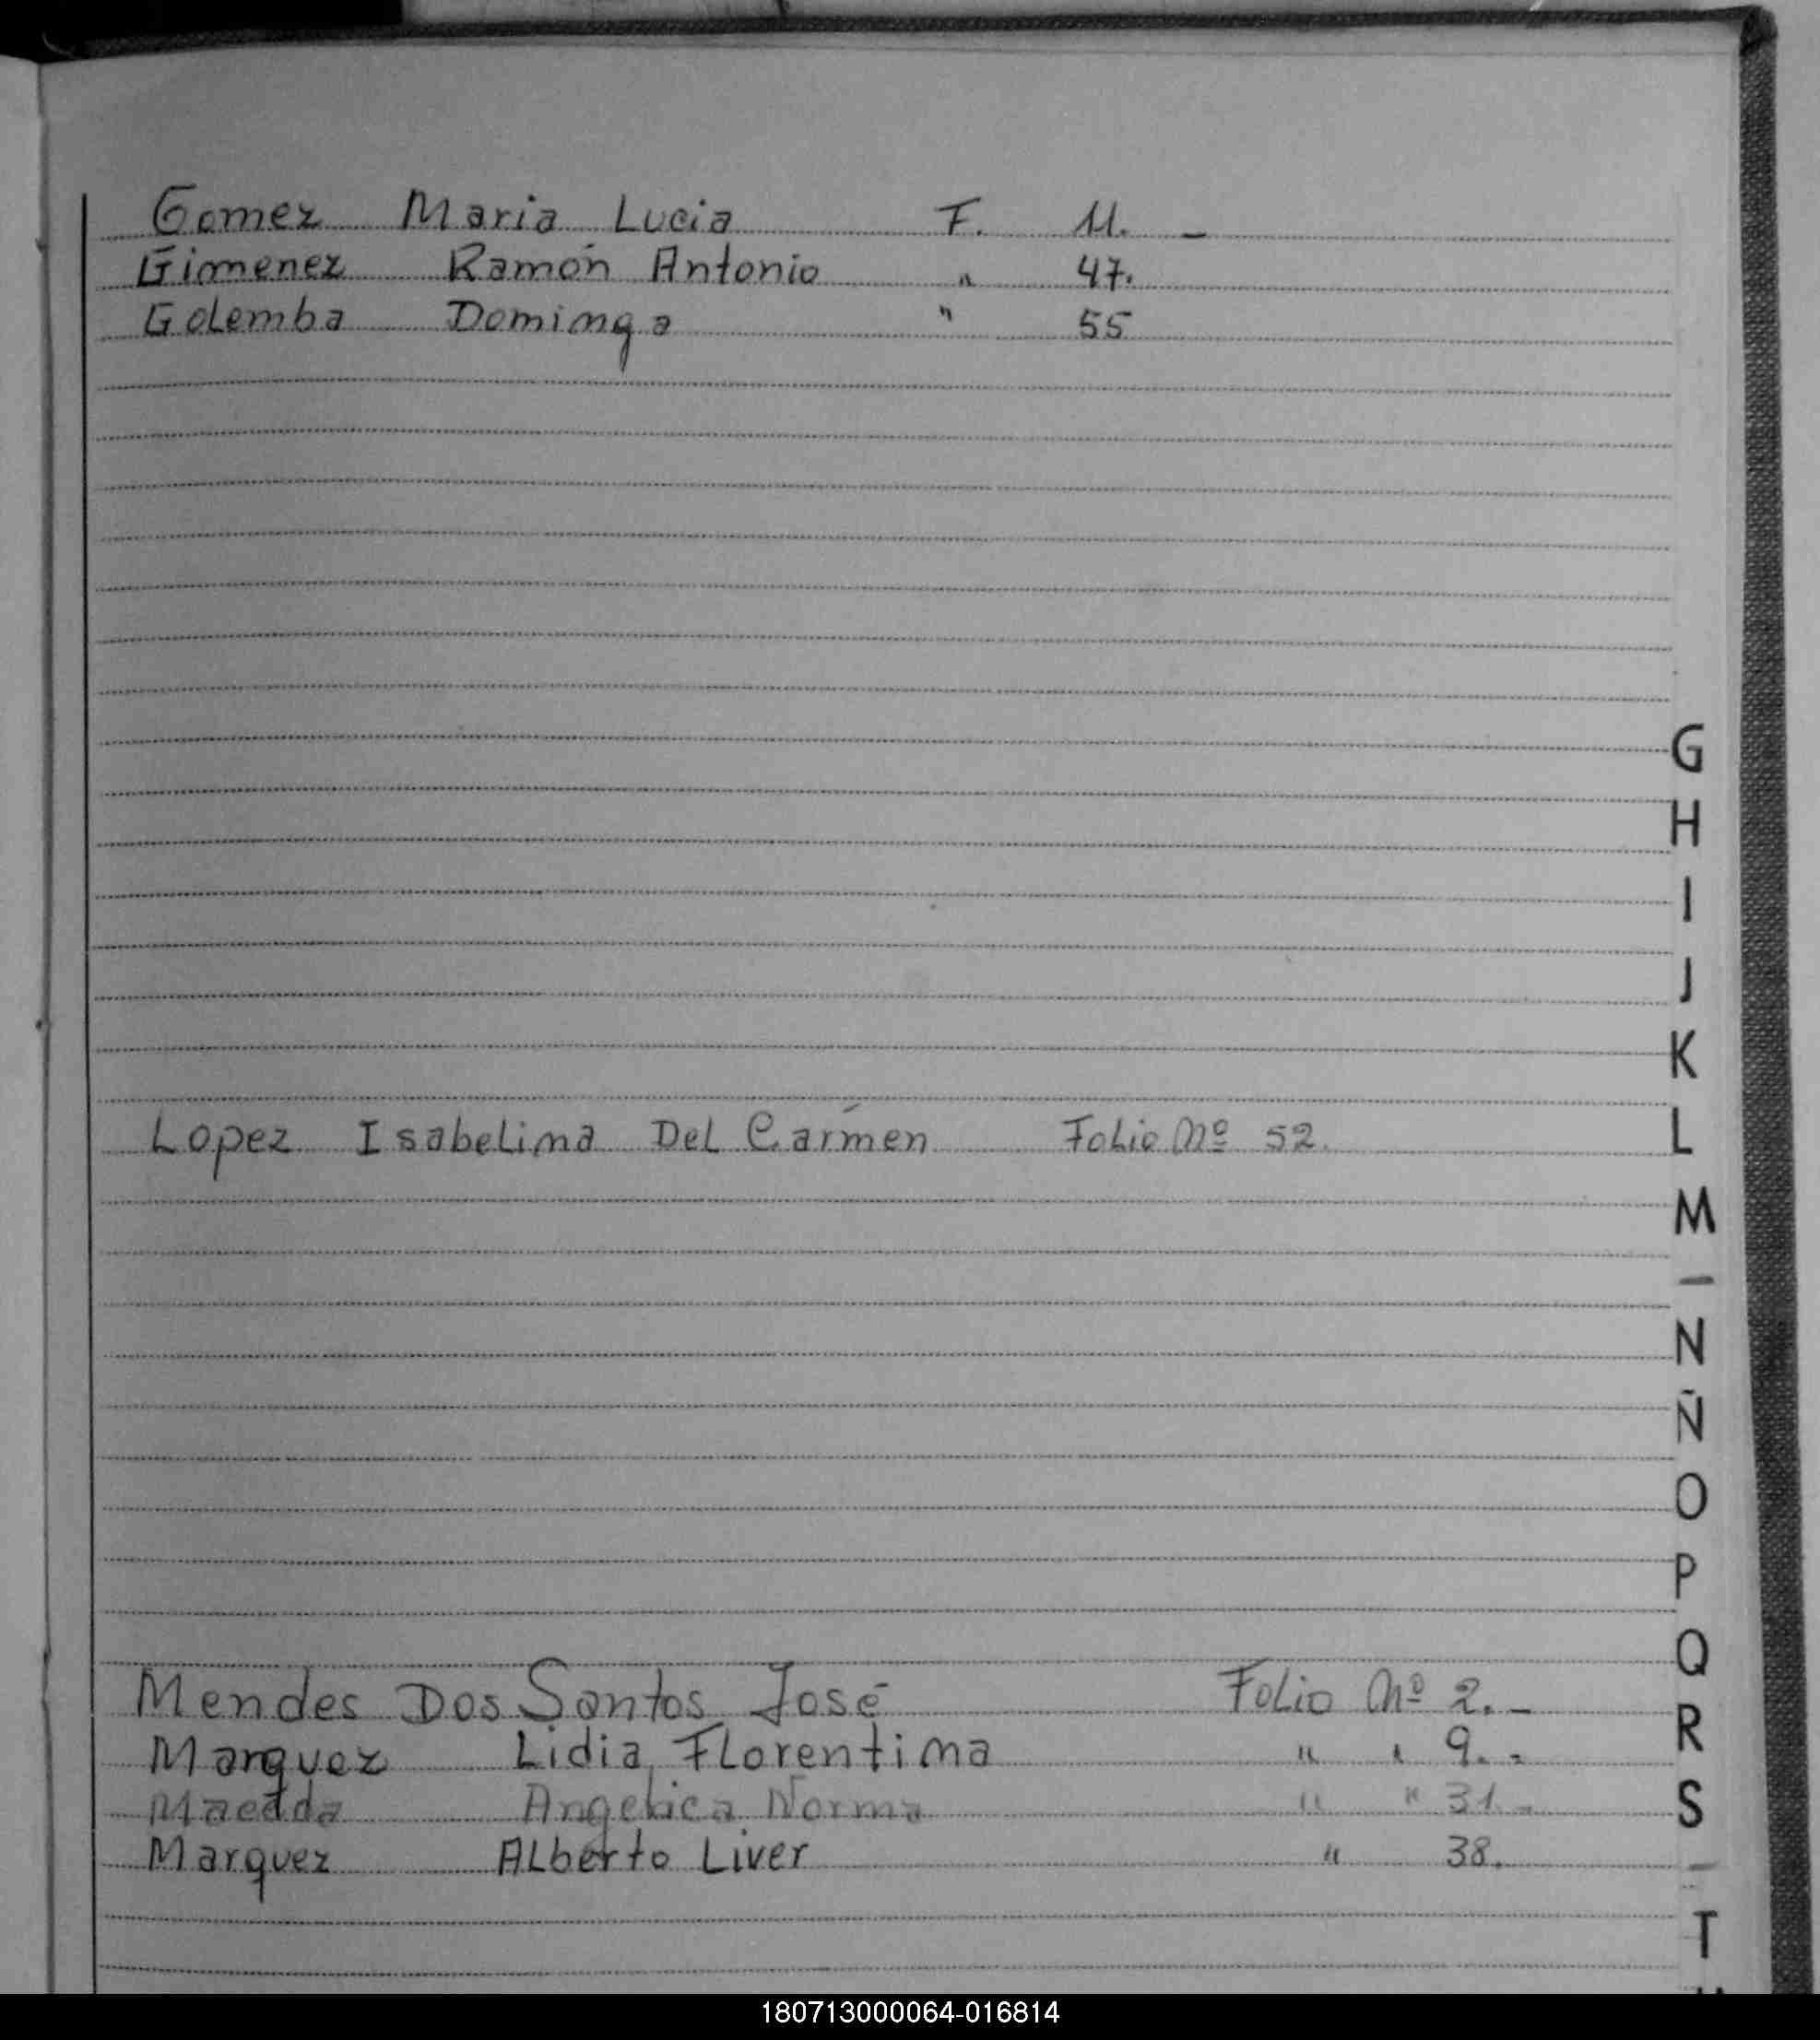 Gomez Maria Lucia F. 11. -
Gimenez Ramón Antonio " 47.
Golemba Dominga " 55
G
H
I
J
K
Lopez Isabelina Del Carmen Folio Nº 52.
L
M
-
N
Ñ
O
P
Q
Mendes Dos Santos José Folio Nº 2. -
R
Marquez Lidia Florentina " " 9. -
Angelica Norma " " 31. -
S
Marquez Alberto Liver " 38.
-
T
180713000064-016814